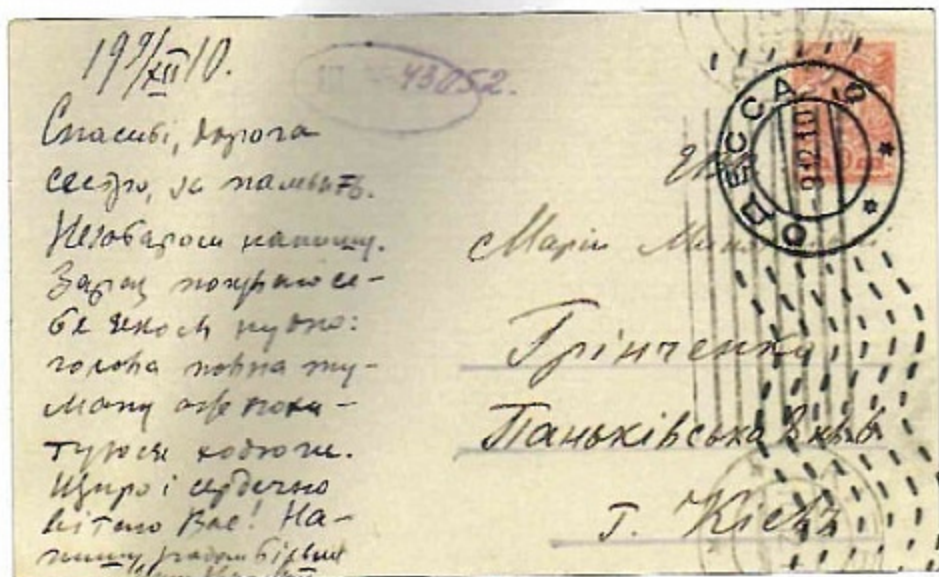 19 9/XII 10.
Спасибі, дорога
сестро, за память.
Незабаром напишу.
Зараз почуваю се-
бе якось нудно:
голова повна ту-
ману аже поки-
туюся ходючи.
Щиро і сердечно
вітаю Вас! На-
пишу
43052.
ОДЕССА
9 12 10
Марії
Грінченко
Паньківська
г. Кіевъ